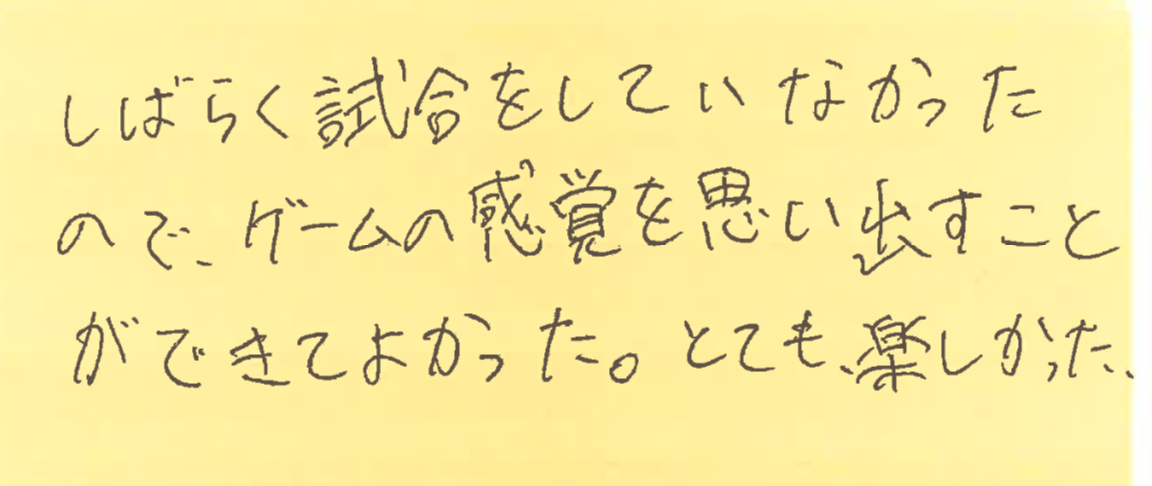 しばらく試合をしていなかった
ので、ゲームの感覚を思い出すこと
ができてよかった。とても、楽しかった、